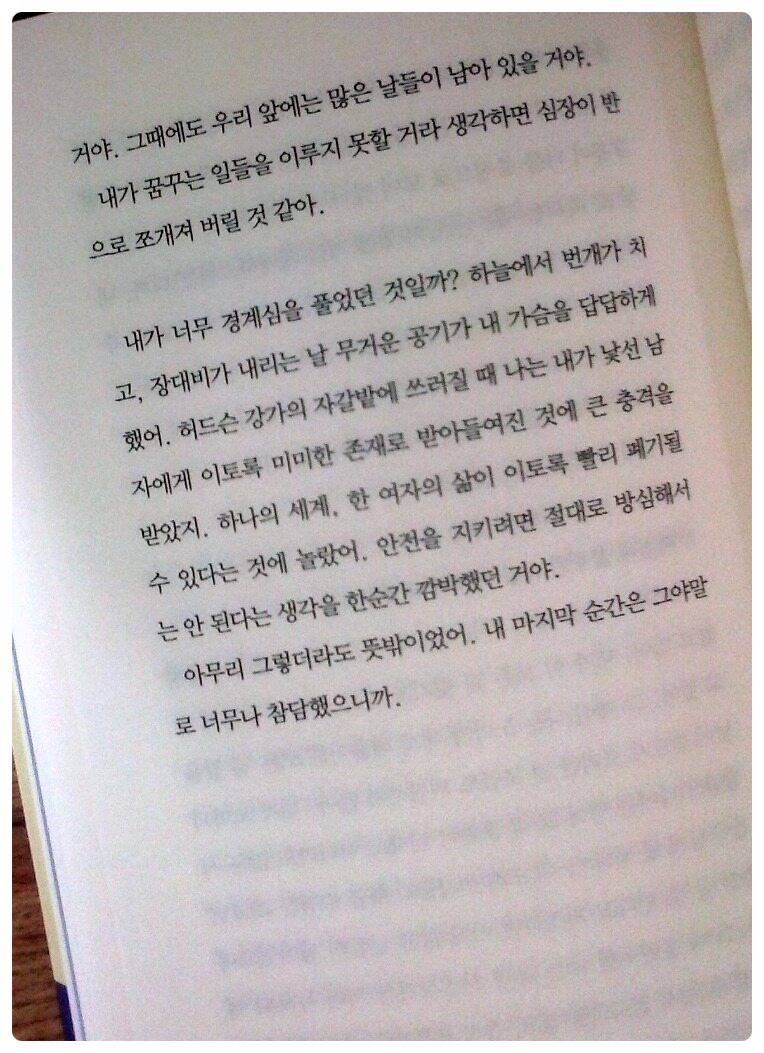 거야. 그때에도 우리 앞에는 많은 날들이 남아 있을 거야.
내가 꿈꾸는 일들을 이루지 못할 거라 생각하면 심장이 반
으로 쪼개져 버릴 것 같아.
내가 너무 경계심을 풀었던 것일까? 하늘에서 번개가 치
고, 장대비가 내리는 날 무거운 공기가 내 가슴을 답답하게
했어. 허드슨 강가의 자갈밭에 쓰러질 때 나는 내가 낯선 남
자에게 이토록 미미한 존재로 받아들여진 것에 큰 충격을
받았지. 하나의 세계, 한 여자의 삶이 이토록 빨리 폐기될
수 있다는 것에 놀랐어. 안전을 지키려면 절대로 방심해서
는 안 된다는 생각을 한순간 깜박했던 거야.
아무리 그렇더라도 뜻밖이었어. 내 마지막 순간은 그야말
로 너무나 참담했으니까.